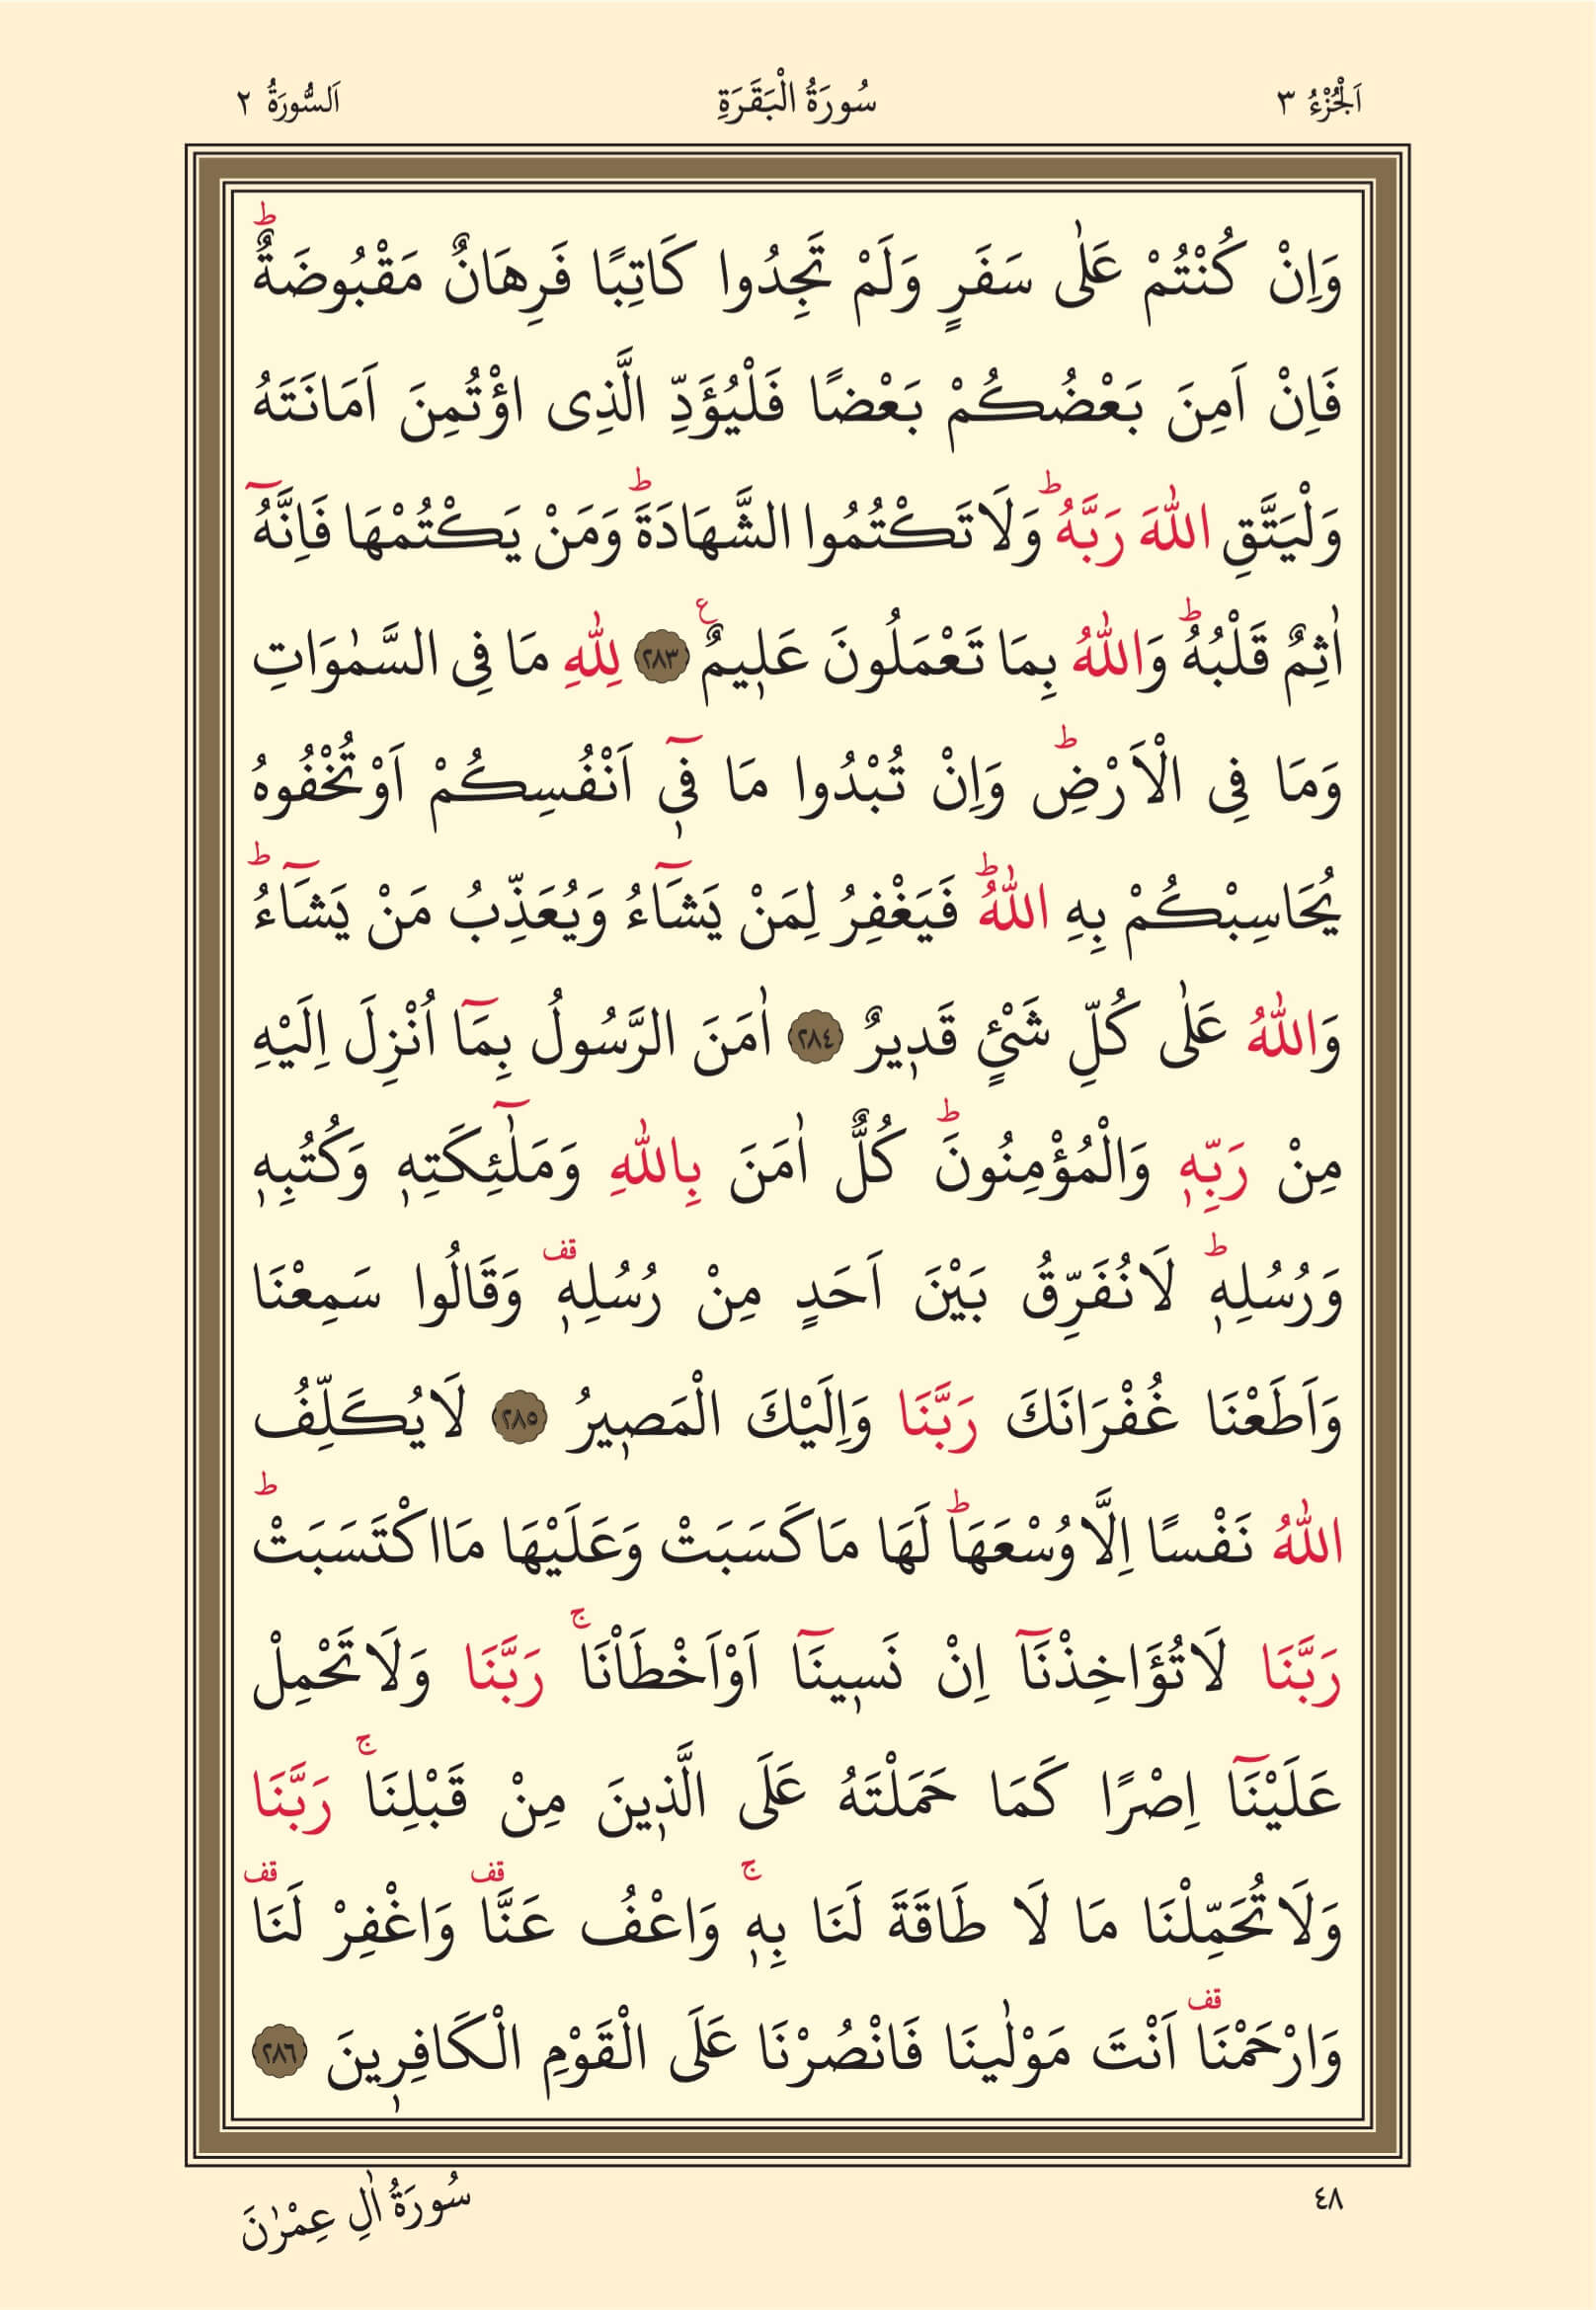 اَلْجُزْءُ ٣
سُورَةُ الْبَقَرَةِ
اَلسُّورَةُ ٢
وَاِنْ كُنْتُمْ عَلٰى سَفَرٍ وَلَمْ تَجِدُوا كَاتِبًا فَرِهَانٌ مَقْبُوضَةٌۜ
فَاِنْ اَمِنَ بَعْضُكُمْ بَعْضًا فَلْيُؤَدِّ الَّذِى اؤْتُمِنَ اَمَانَتَهُ
وَلْيَتَّقِ اللّٰهَ رَبَّهُۜ وَلَا تَكْتُمُوا الشَّهَادَةَۜ وَمَنْ يَكْتُمْهَا فَاِنَّهُٓ
اٰثِمٌ قَلْبُهُۜ وَاللّٰهُ بِمَا تَعْمَلُونَ عَلٖيمٌ ع ٢٨٣ لِلّٰهِ مَا فِى السَّمٰوَاتِ
وَمَا فِى الْاَرْضِۜ وَاِنْ تُبْدُوا مَا فٖٓى اَنْفُسِكُمْ اَوْ تُخْفُوهُ
يُحَاسِبْكُمْ بِهِ اللّٰهُۜ فَيَغْفِرُ لِمَنْ يَشَٓاءُ وَيُعَذِّبُ مَنْ يَشَٓاءُۜ
وَاللّٰهُ عَلٰى كُلِّ شَىْءٍ قَدٖيرٌ ٢٨٤ اٰمَنَ الرَّسُولُ بِمَٓا اُنْزِلَ اِلَيْهِ
مِنْ رَبِّهٖ وَالْمُؤْمِنُونَۜ كُلٌّ اٰمَنَ بِاللّٰهِ وَمَلٰٓئِكَتِهٖ وَكُتُبِهٖ
وَرُسُلِهٖۜ لَا نُفَرِّقُ بَيْنَ اَحَدٍ مِنْ رُسُلِهٖ قف وَقَالُوا سَمِعْنَا
وَاَطَعْنَا غُفْرَانَكَ رَبَّنَا وَاِلَيْكَ الْمَصٖيرُ ٢٨٥ لَا يُكَلِّفُ
اللّٰهُ نَفْسًا اِلَّا وُسْعَهَاۜ لَهَا مَا كَسَبَتْ وَعَلَيْهَا مَا اكْتَسَبَتْۜ
رَبَّنَا لَا تُؤَاخِذْنَٓا اِنْ نَسٖينَٓا اَوْ اَخْطَاْنَاۚ رَبَّنَا وَلَا تَحْمِلْ
عَلَيْنَٓا اِصْرًا كَمَا حَمَلْتَهُ عَلَى الَّذٖينَ مِنْ قَبْلِنَاۚ رَبَّنَا
وَلَا تُحَمِّلْنَا مَا لَا طَاقَةَ لَنَا بِهٖۚ وَاعْفُ عَنَّا قف وَاغْفِرْ لَنَا قف
وَارْحَمْنَا قف اَنْتَ مَوْلٰينَا فَانْصُرْنَا عَلَى الْقَوْمِ الْكَافِرٖينَ ٢٨٦
٤٨
سُورَةُ اٰلِ عِمْرٰنَ